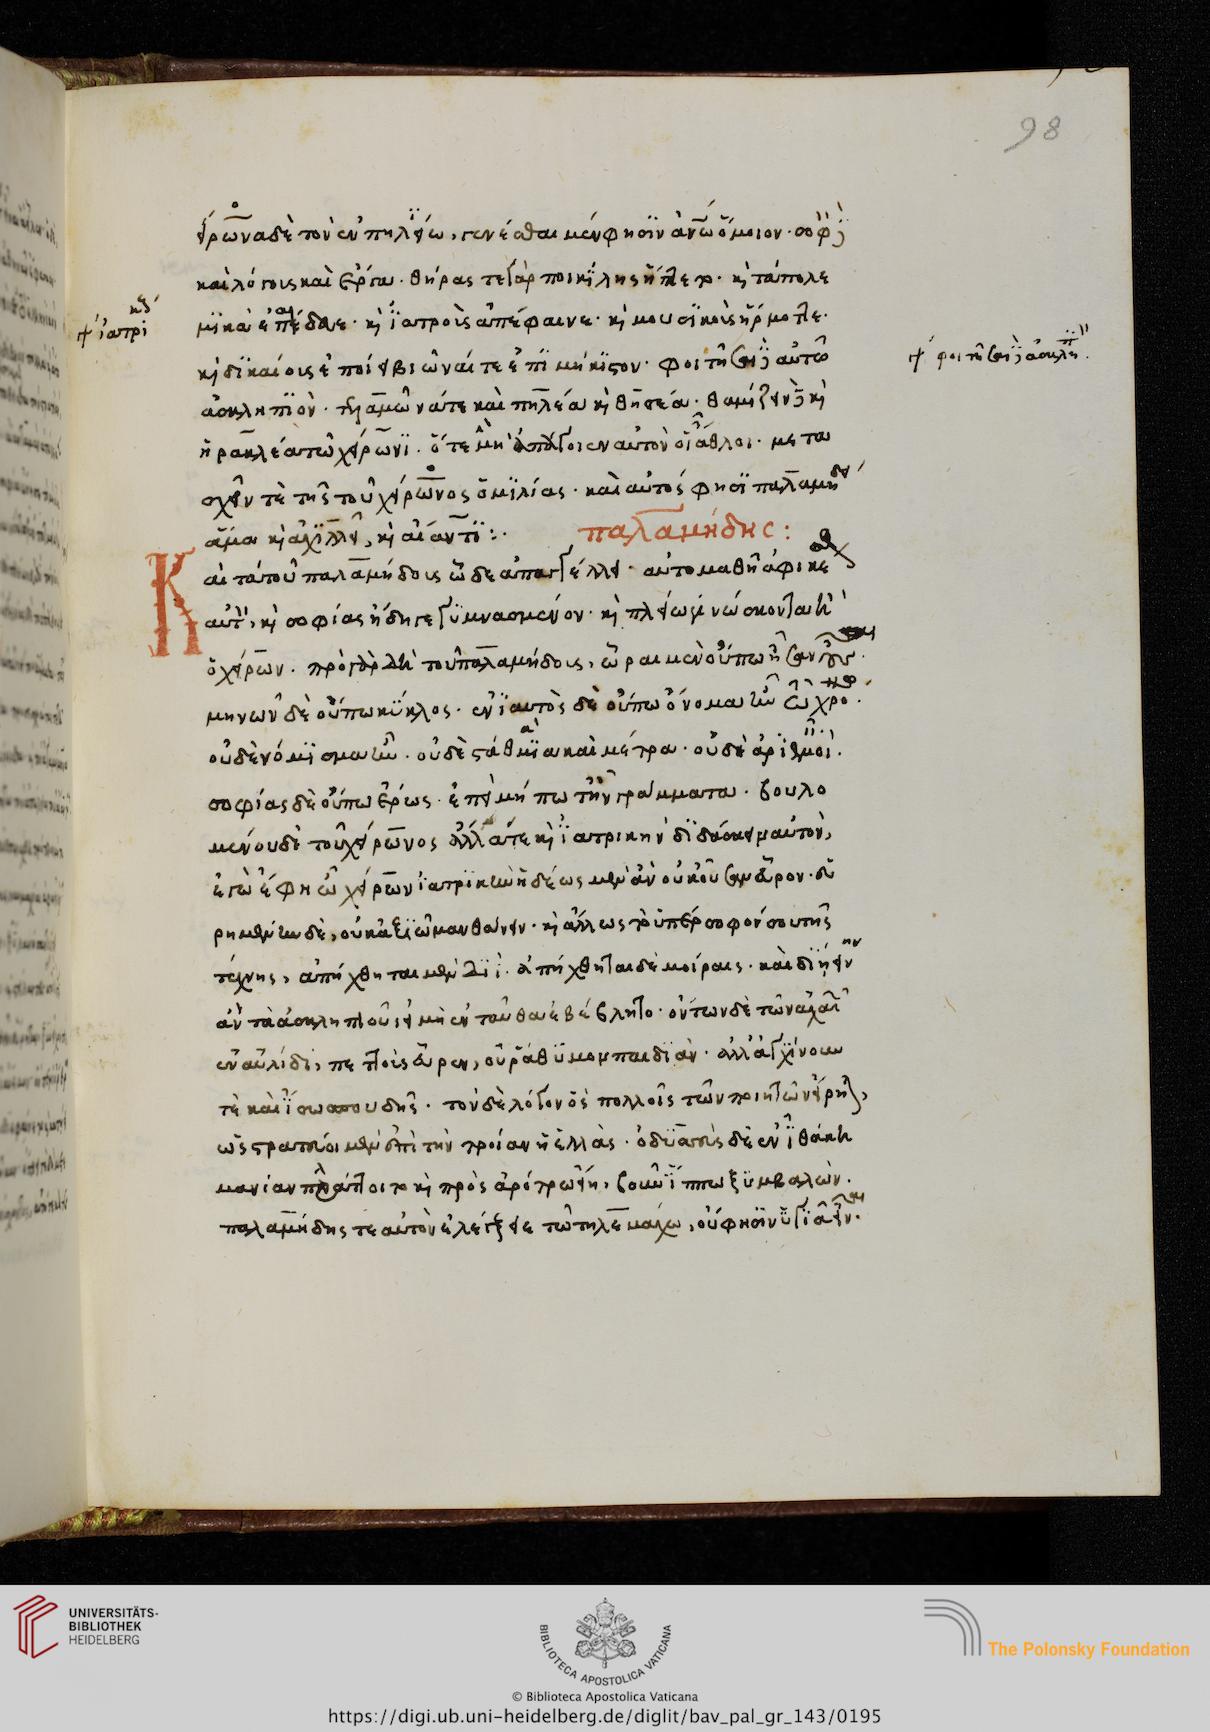 98
είρωνα δὲ τὸν ἐν πηλίῳ, γενέσθαι μέν φησιν ἀνθρώπῳ ὅμοιον· σοφὸν
καὶ λόγοις καὶ ἔργα· θήρας τε γὰρ ποικίλης ἥπτετο· κὶ τὰ πολε
μϊκὰ ἐπαίδευε· κὶ ἰατροὺς ἀπέφαινε· κὶ μουσϊκοὺς ἥρμοττε·
κὶ δικαίους ἐποίει βιῶναί τε ἐπὶ μήκιστον· φοιτῆσαι αὐτῶ
ἀσκληπϊὸν· τελαμῶνά τε καὶ πηλέα κὶ θησέα· θαμίζειν κὶ
ἡρακλέα τῶ χείρωνϊ· ὅτε μὴ ἀπάγοιεν αὐτὸν οἱ ἆθλοι· μετα
σχεῖν τὲ τῆς τοῦ χείρωνος ὁμϊλίας· καὶ αὐτός φησϊ παλαμήδει
ἅμα κὶ ἀχιλλεῖ, κὶ αἴαντϊ:·
παλαμήδης:
Καὶ τὰ τοῦ παλαμήδους ὧδε ἀπαγγέλλει· αὐτομαθῆ ἀφικέσθαι
αὐτὸν, κὶ σοφίας ἤδη γεγϋμνασμένον· κὶ πλείω γινώσκοντα ἢ
ὁ χείρων. πρὸ γὰρ δὴ τοῦ παλαμήδους, ὧραι μὲν οὔπω ἦσαν οὖσαι.
μηνῶν δὲ οὔπω κύκλος· ἐνϊαυτὸς δὲ οὔπω ὄνομα ἦν τῶ χρόνω.
οὐδὲ νόμϊσμα ἦν. οὐδὲ στάθμϊα καὶ μέτρα· οὐδὲ ἀρϊθμεῖν.
σοφίας δὲ οὔπω ἔρως· ἐπεὶ μή πω τὴν γράμματα. βουλο
μένου δὲ τοῦ χείρωνος ἀλλά τε κὶ ἰατρικὴν διδάσκειν αὐτὸν,
ἐγὼ ἔφη ὦ χείρων ἰατρϊκὴν ἡδέως μὲν ἂν οὐκ οὖσαν εὗρον· εὑ
ρημένην δὲ, οὐκ ἀξϊῶ μανθάνειν· κὶ ἄλλως τὸ ὑπέρσοφόν σου τῆς
τέχνης, ἀπήχθηται μὲν διὶ· ἀπήχθηται δὲ μοίραις· καὶ διῄειν
ἂν τὰ ἀσκληπιοῦ εἰ μὴ ἐνταῦθα ἐβέβλητο· ὄντων δὲ τῶν ἀχαιῶν
ἐν αὐλίδϊ, πεττοὺς εὗρεν, οὐ ῥάθϋμον παιδϊὰν· ἀλλ' ἀγχίνουν
τὲ καὶ ἴσω σπουδῆς· τὸν δὲ λόγον ὃς πολλοῖς τῶν ποιητῶν εἴρηται,
ὡς στρατεύοι μὲν ἐπὶ τὴν τροίαν ἡ ἑλλὰς· ὀδυσσεὺς δὲ ἐν ἰθάκῃ
μανίαν πλάττοιτο κὶ πρὸς ἀρότρω εἴη, βοῦν ἵππω ξυμβαλὼν.
παλαμήδης τε αὐτὸν ἐλέγξειε τῶ τηλεμάχω, οὔ φησϊν ὑγιᾶ εἶναι.
ἰατρικούς
φοιτῆσαι ἀσκληπιὸν.
UNIVERSITÄTS-
BIBLIOTHEK
HEIDELBERG
BIBLIOTECA APOSTOLICA VATICANA
The Polonsky Foundation
© Biblioteca Apostolica Vaticana
https://digi.ub.uni-heidelberg.de/diglit/bav_pal_gr_143/0195